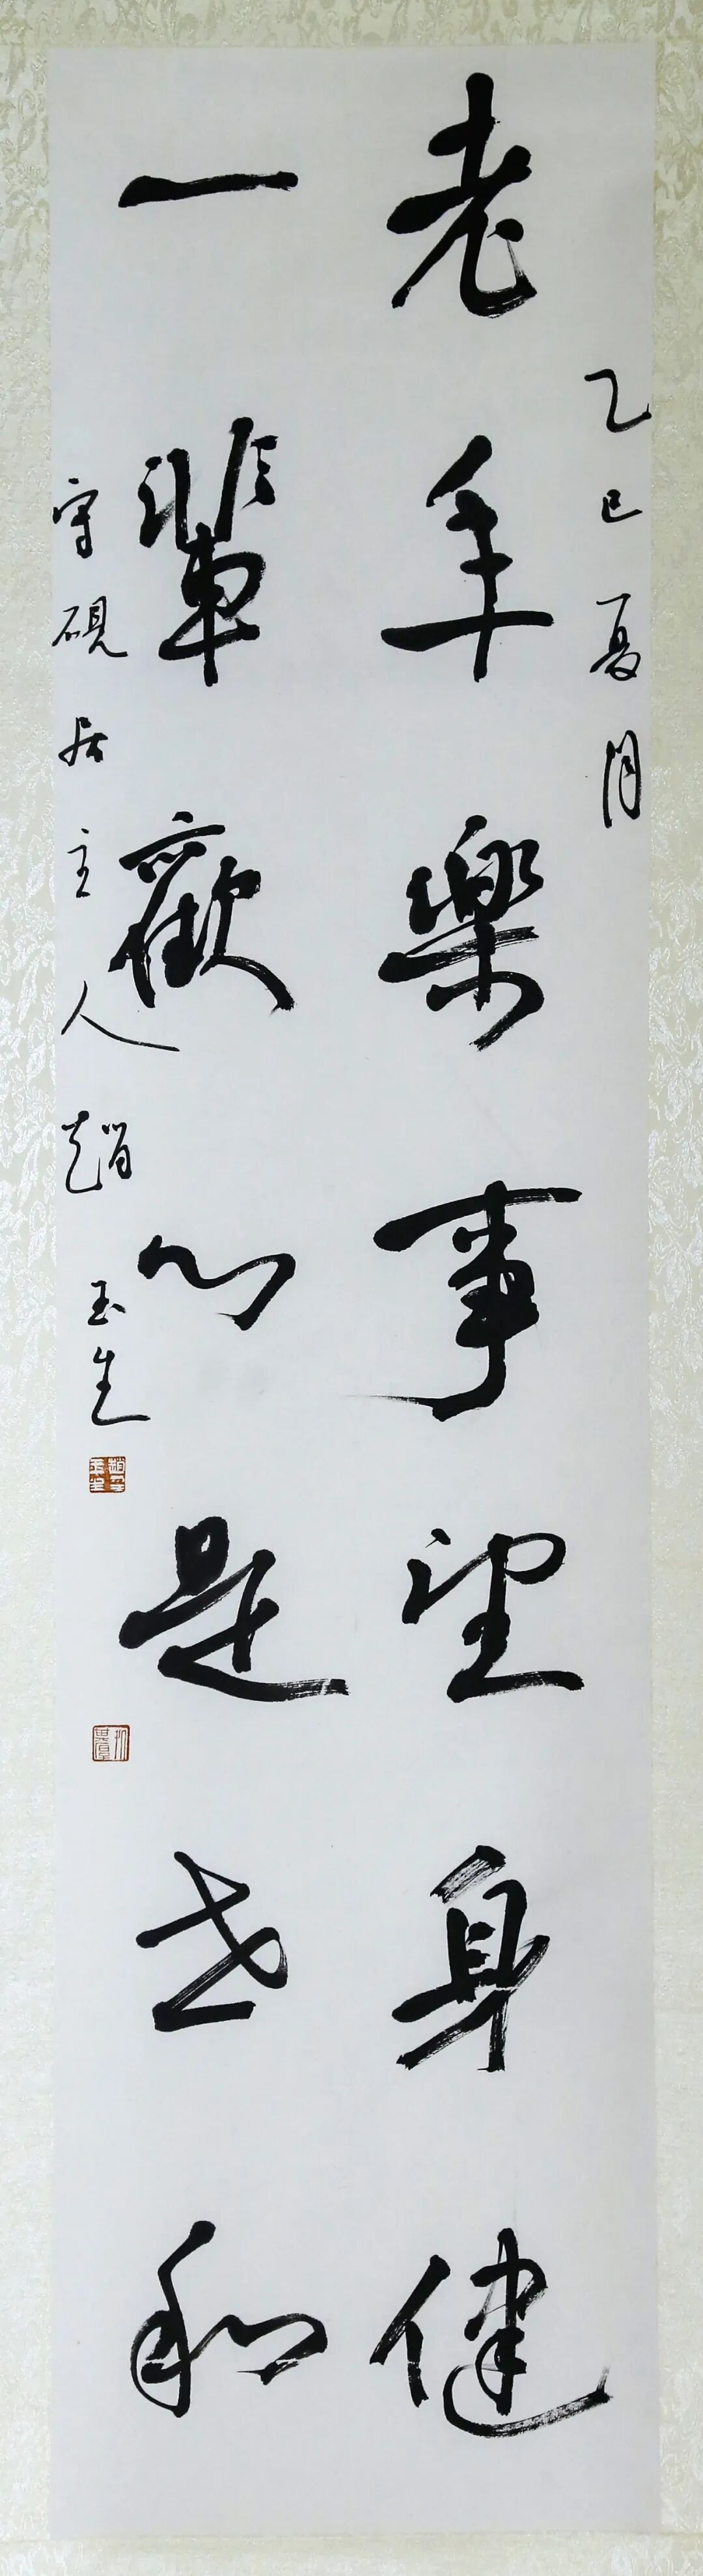 老年樂事望身健
一輩歡心是世和
乙巳夏月
守硯居主人趙玉生
趙玉生